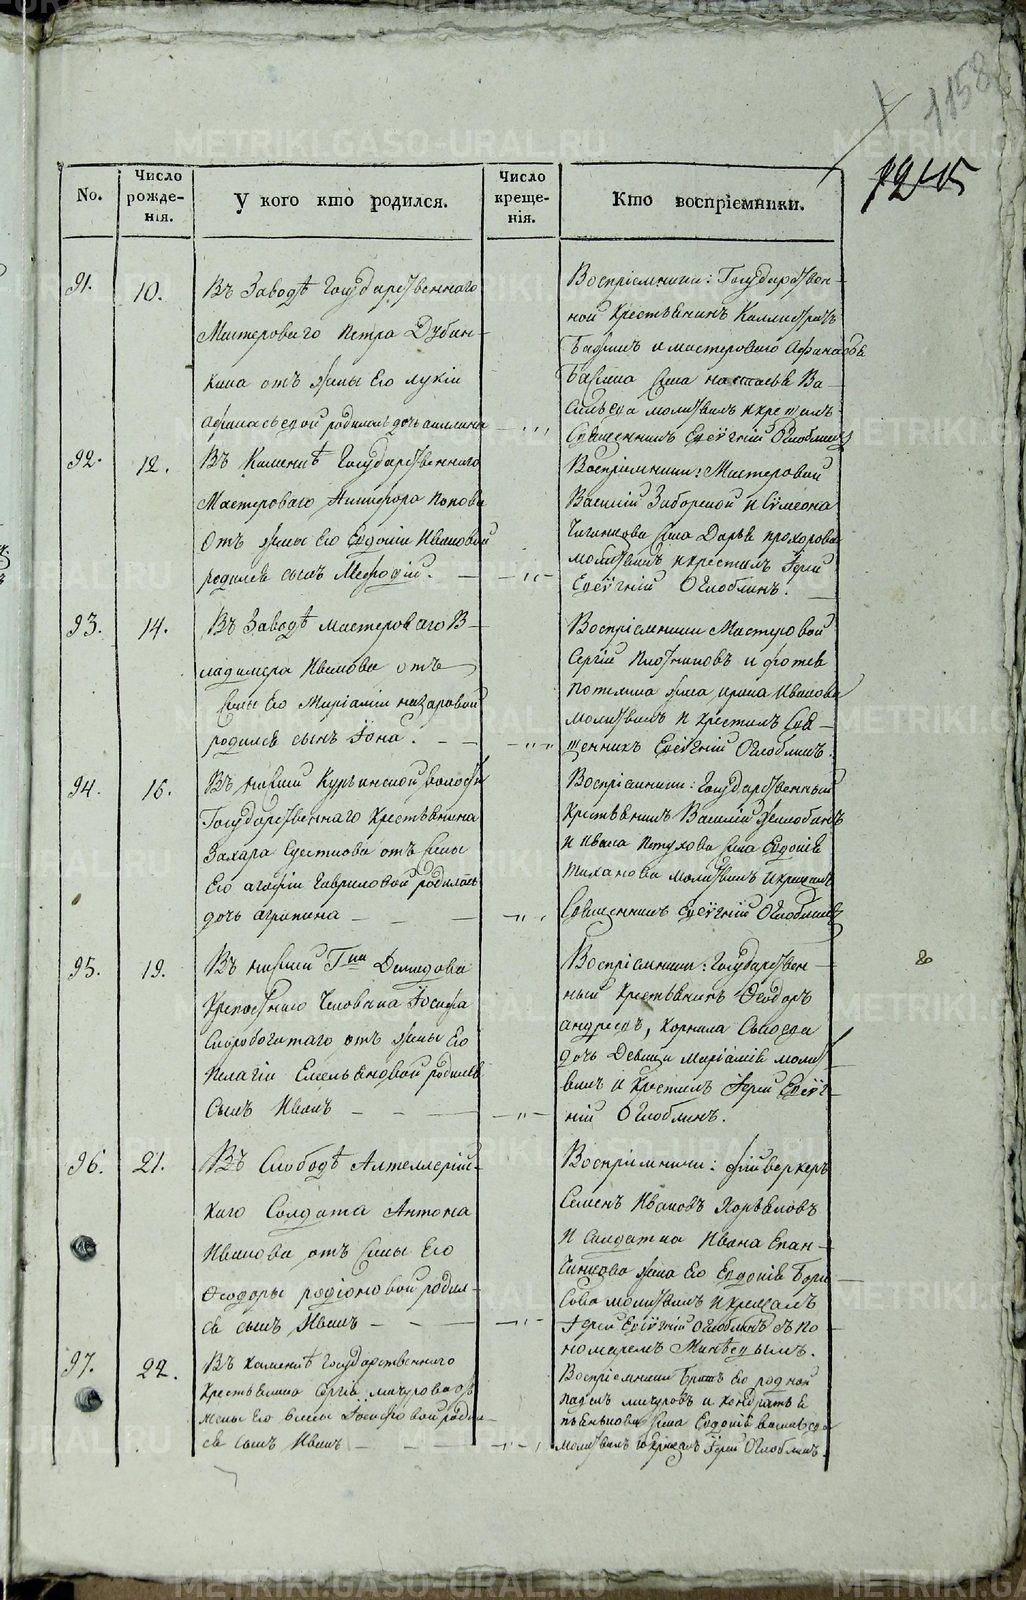 1158
1245
No.
Число рожде-нія.
У кого кто родился.
Число креще-нія.
Кто воспріемники.
91.
10.
Въ Заводѣ Государственнаго
Мастероваго Петра Дубин-
кина отъ жены Его Лукіи
родилась дочь
Воспріемники: Государствен-
ной Крестьянинъ Каллистратъ
и мастероваго
жена Настасья Ва-
сильева молитвилъ и крестилъ
Священникъ Евѳѵгній Оглоблинъ
92.
12.
Въ Каменкѣ Государственнаго
Мастероваго Никифора Попова
Отъ жены Его Евдокіи Ивановой
родился сынъ Меѳодій.
Воспріемники: Мастеровой
Василій Заборской и Сѵмеона
жена Дарья Прохорова
молитвилъ и крестилъ Іерей
Евѳѵгній Оглоблинъ.
93.
14.
Въ Заводѣ мастероваго В-
ладимера Иванова отъ
жены Его Маріаміи Назаровой
родился сынъ Іона.
Воспріемники Мастеровой
Сергій Плотниковъ и
жена Ирина Иванова
молитвилъ и крестилъ Свя-
щенникъ Евѳѵгній Оглоблинъ.
94.
16.
Въ Курьинской волости
Государственнаго Крестьянина
Захара отъ жены
Его Агафіи Гавриловой родилась
дочь Агрипина
Воспріемники: Государственный
Крестьянинъ Василій Жолобовъ
и Ивана Петухова жена Евдокія
Тиханова молитвилъ и крещалъ
Священникъ Евѳѵгній Оглоблинъ
95.
19.
Въ Г-на Демидова
Крепостнаго Человека Іосифа
Скоробогатаго отъ жены Его
Пелагіи Емельяновой родился
Сынъ Иванъ
Воспріемники: Государствен-
ный Крестьянинъ Ѳеодоръ
Андреевъ, Корнила
дочь Девица Маріамія молит-
вилъ и Крестилъ Іерей Евѳѵг-
ній Оглоблинъ.
96.
21.
Въ Слободѣ Алтеллерійс-
каго Солдата Антона
Иванова отъ жены Его
Ѳеодоры Родіоновой родил-
ся сынъ Иванъ
Воспріемники: фѣйверкеръ
Семенъ Ивановъ
и Солдатка Ивана Епан-
жена Его Евдокія Бори-
сова молитвилъ и крещалъ
Іерей Евѳѵгній Оглоблинъ съ по-
номаремъ
97.
22.
Въ Каменкѣ Государственнаго
Крестьянина Сергія Мичурова отъ
жены Его Іосифовой родил-
ся сынъ Иванъ
Воспріемники Братъ Его родной
Павелъ Мичуровъ и Кондратья
жена Евдокія
молитвилъ и крещалъ Іерей Оглоблинъ.
METRIKI.GASO-URAL.RU